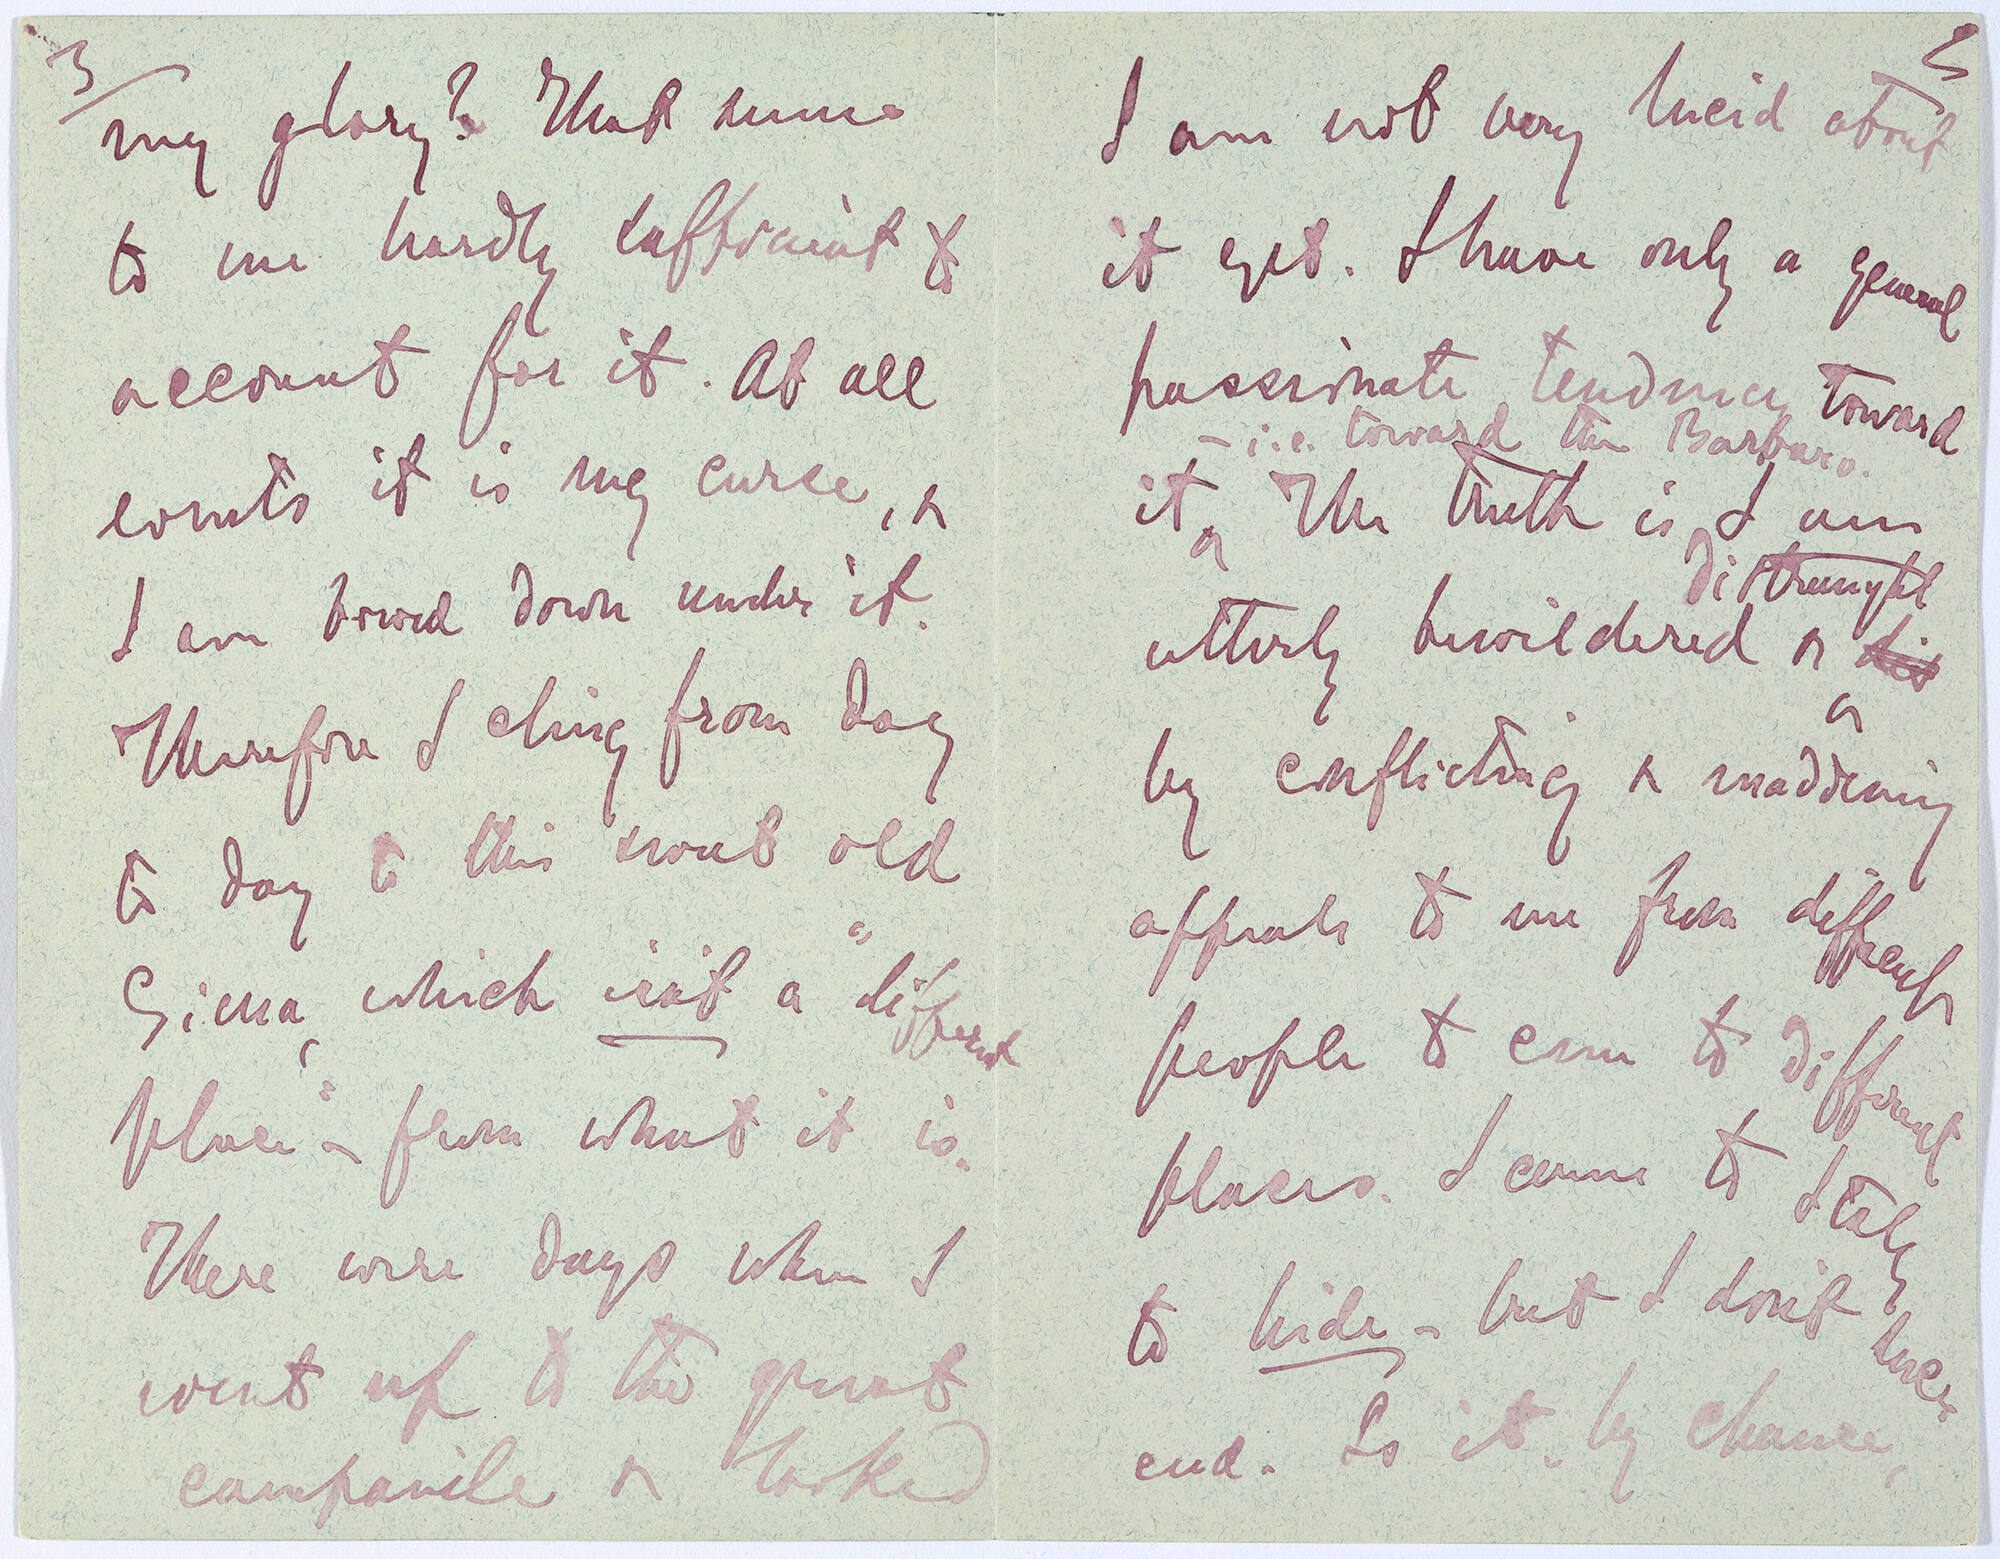 2
I am not very lucid about
it yet. I have only a general
passionate tendency toward
– i.e. toward the Barbaro.
it. The truth is I am
distraught
utterly bewildered & dis
by conflicting & maddening
appeals to me from different
people to come to different
places. I came to Italy
to hide – but I don't succ-
eed. Is it, by chance,
3
my glory? That seems
to me hardly sufficient to
account for it. At all
events it is my curse, &
I am bowed down under it.
Therefore I cling from day
to day to this sweet old
Siena, which isn't a "different
place" – from what it is.
There were days when I
went up to the great
campanile & looked